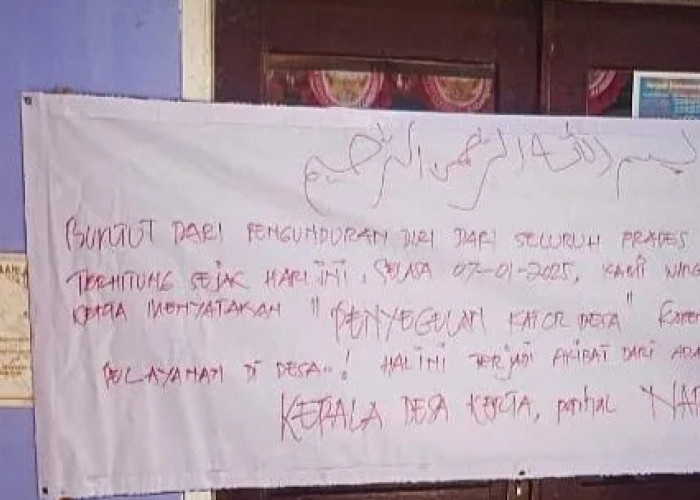 بسم الله الرحمن الرحيم
BUNTUT DARI PENGUNDURAN DIRI DARI SELURUH PRADES
TERHITUNG SEJAK HARI INI, SELASA 07-01-2025, KAMI WARG
KERTA MENYATAKAN "PENYEGELAN KATOR DESA" KAREN
PELAYANAN DI DESA..! HAL INI TERJADI AKIBAT DARI ADA
KEPALA DESA KERTA, perihal NAR